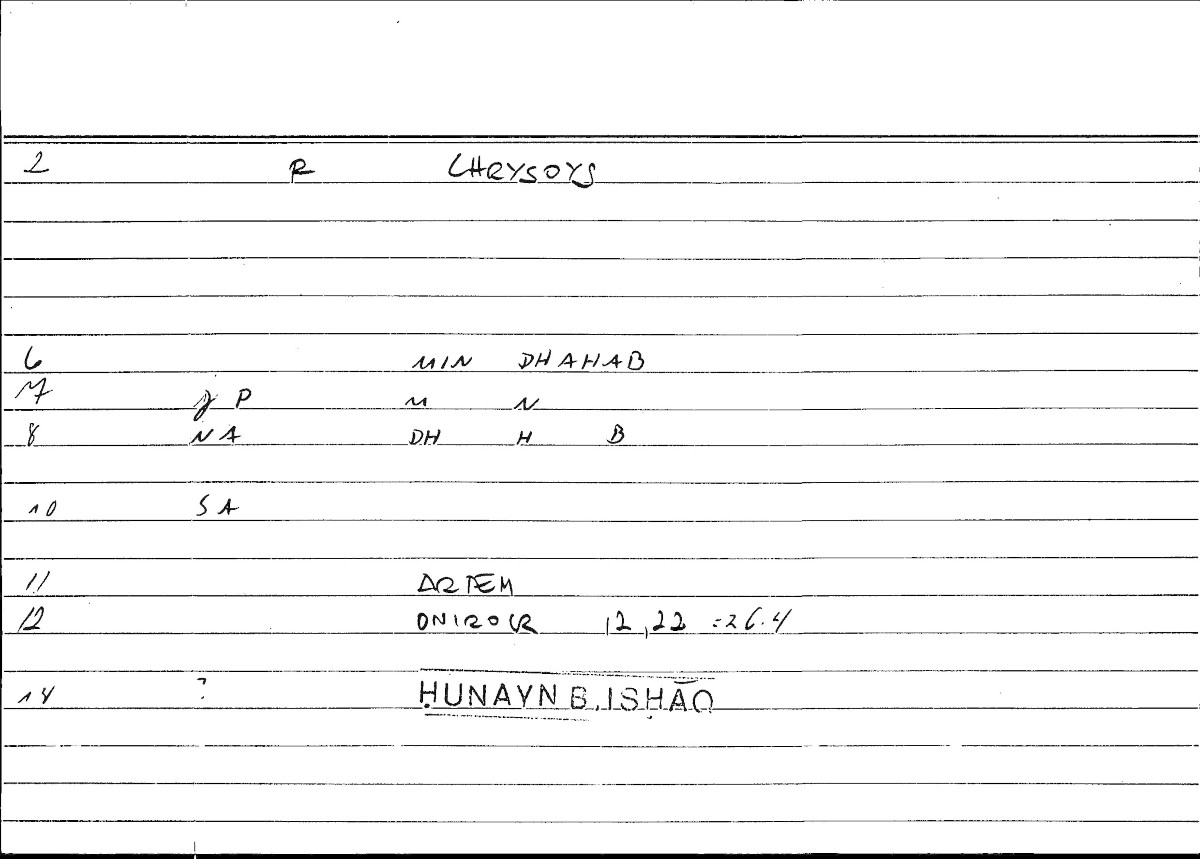 2 R CHRYSOYS
6 MIN DHAHAB
7 P M N
8 NA DH H B
10 SA
11 ARTEM
12 ONIROCR 12,22 =26.4
14 ? ḤUNAYN B. ISḤĀQ